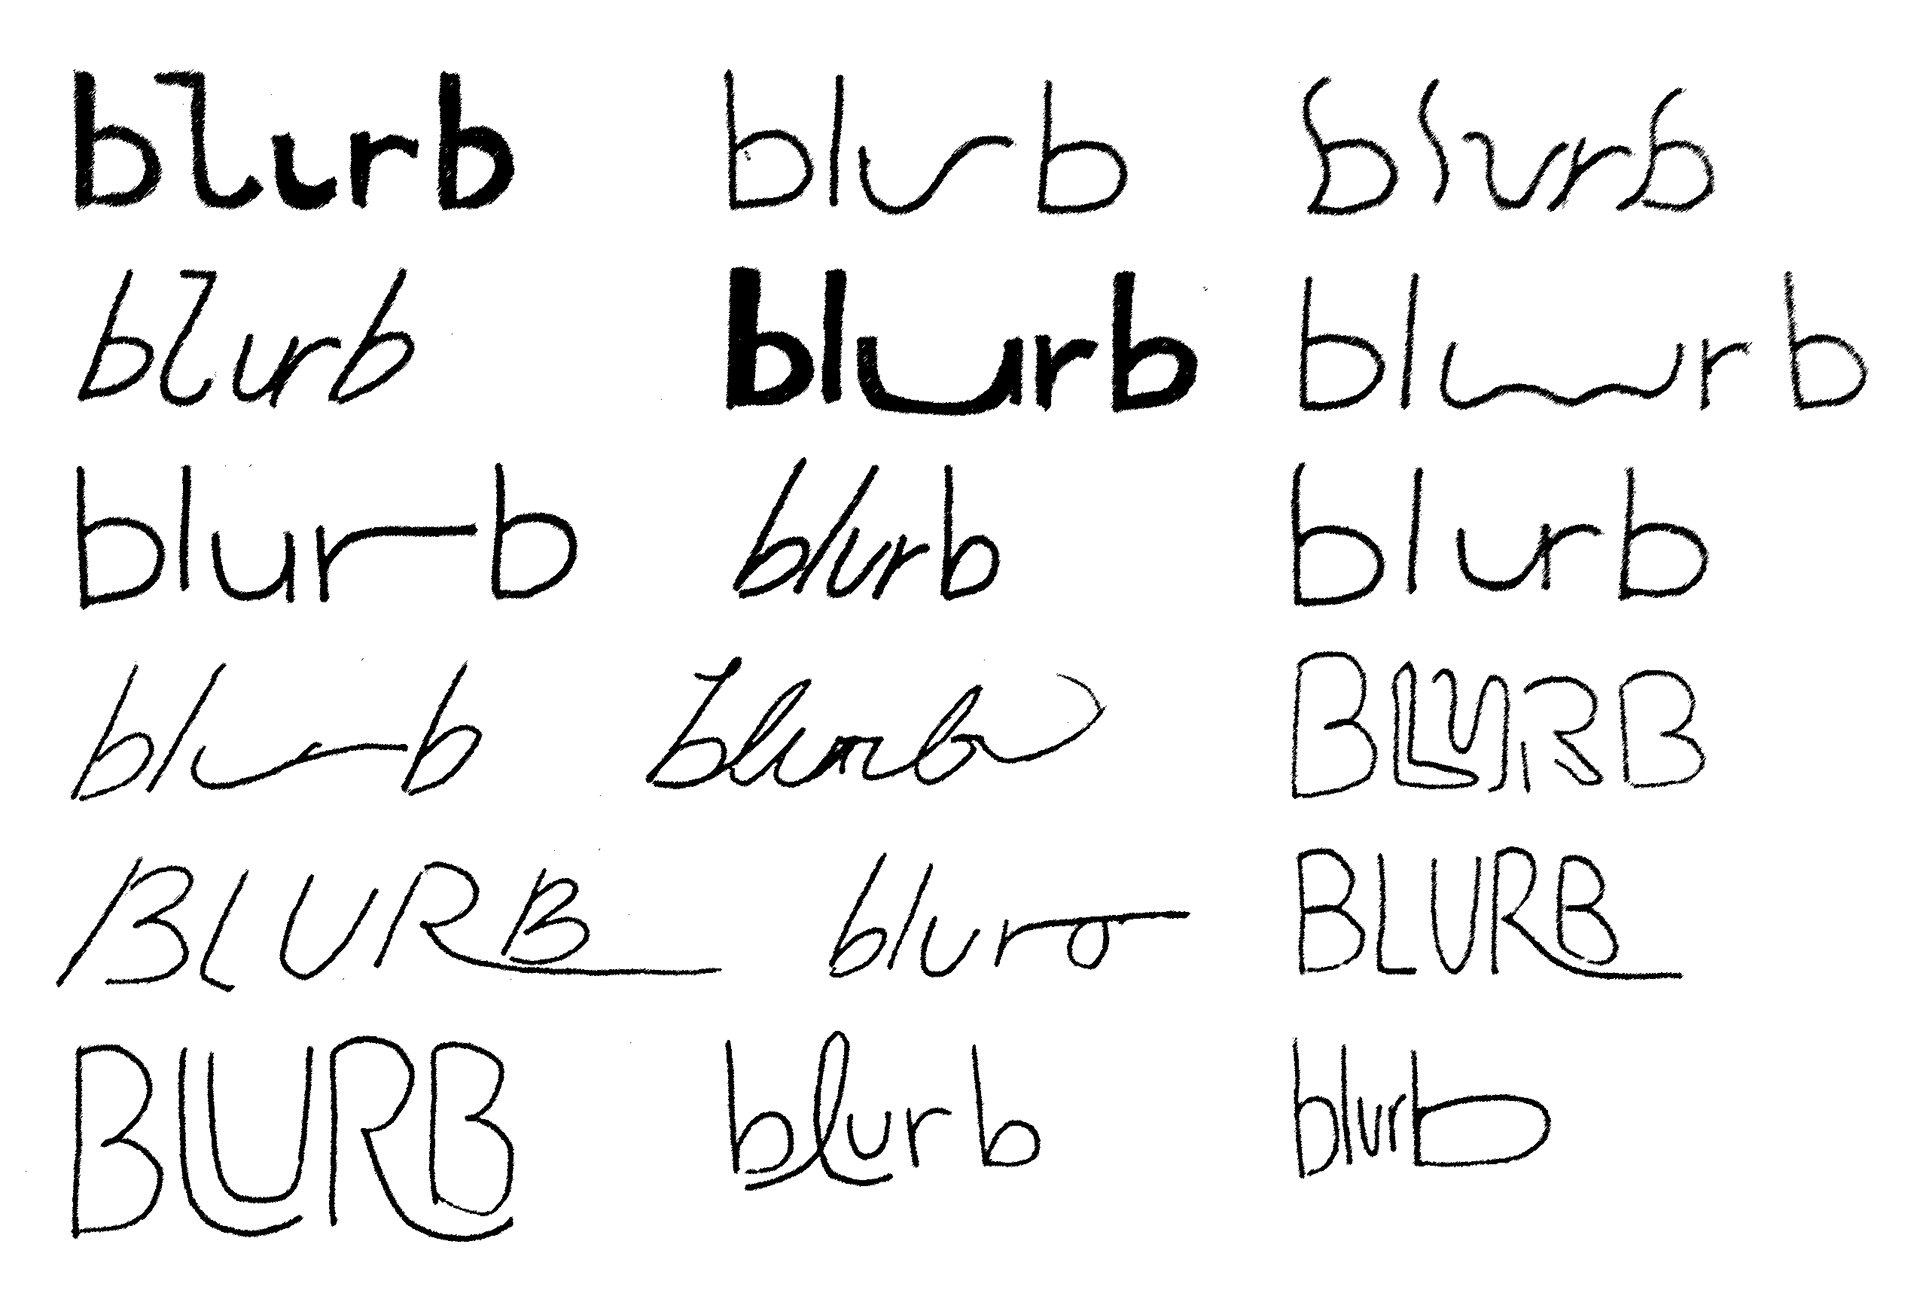 blurb blurb blurb
blurb blurb blurb
blurb blurb blurb
blurb blurb BLURB
BLURB blurb BLURB
BLURB blurb blurb